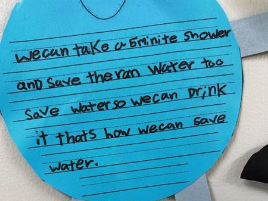 we can take a 5 minite shower
and save the ran water too
save water so we can Drink
it thats how we can save
water.